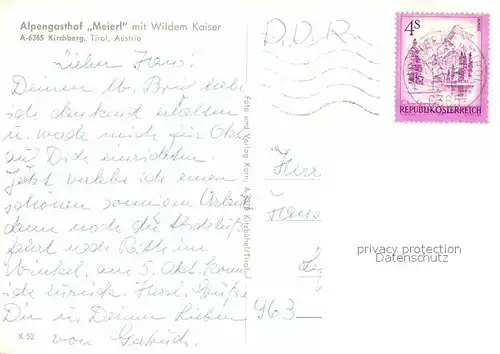 Alpengasthof „Meierl" mit Wildem Kaiser
A-6365 Kirchberg, Tirol, Austria
Lieber Hans!
Deinen lb. Brief habe
ich dankend erhalten
u. werde mich für Okt.
auf Dich einrichten.
Jetzt verlebe ich einen
schönen sonnigen Urlaub
dann noch die
fahrt nach
Winkel, am 5. Okt. komme
ich zurück. Herzl. Grüße
Dir u Deinen Lieben
von
K 50
Foto und Verlag Karn, A Kitzbühel/Tirol
D.D.R.
4S
REPUBLIK ÖSTERREICH
Herr
Hans
963
privacy protection
Datenschutz